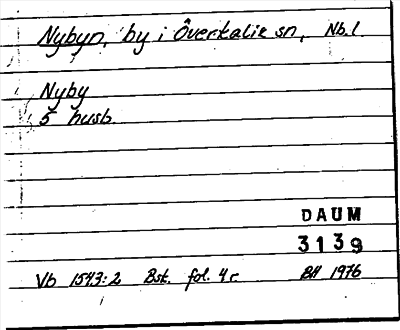 Nybyn, by i Överkalix sn, Nb.l.
Nyby
5 husb.
DAUM
3139
Vb 1543:2 Bst. fol. 4r BH 1976